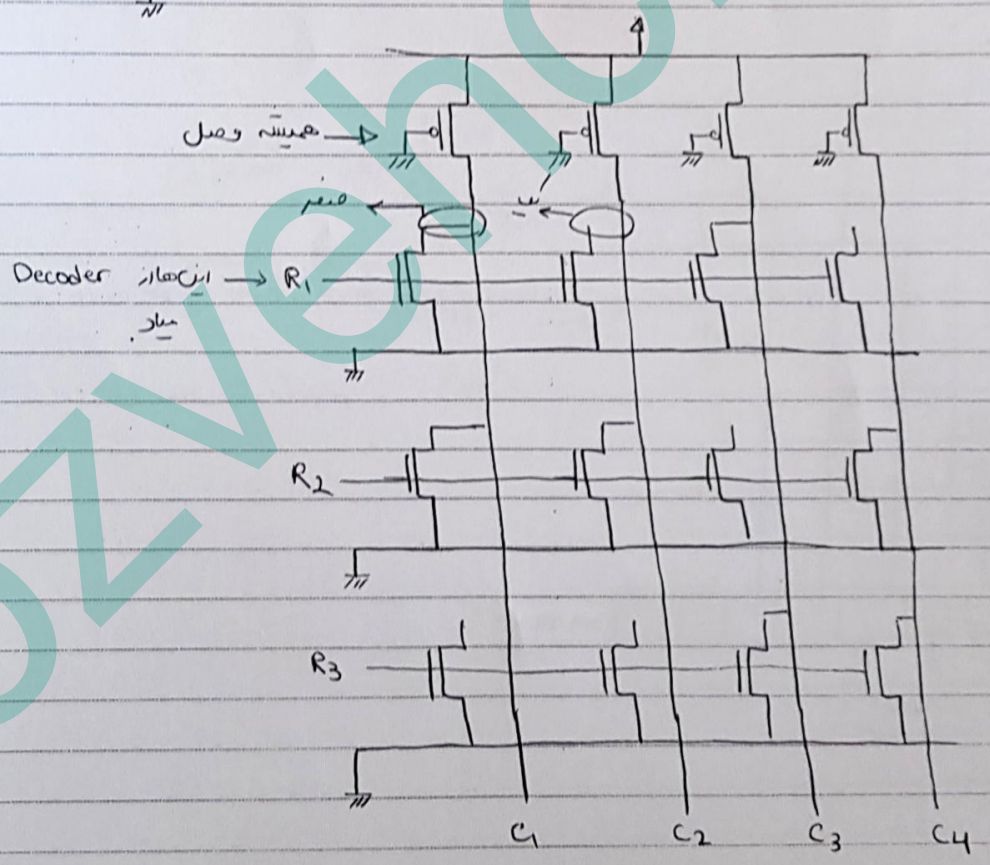 همیشه وصل
صفر
یک
Decoder این‌ها از R1
میاد.
R2
R3
C1 C2 C3 C4